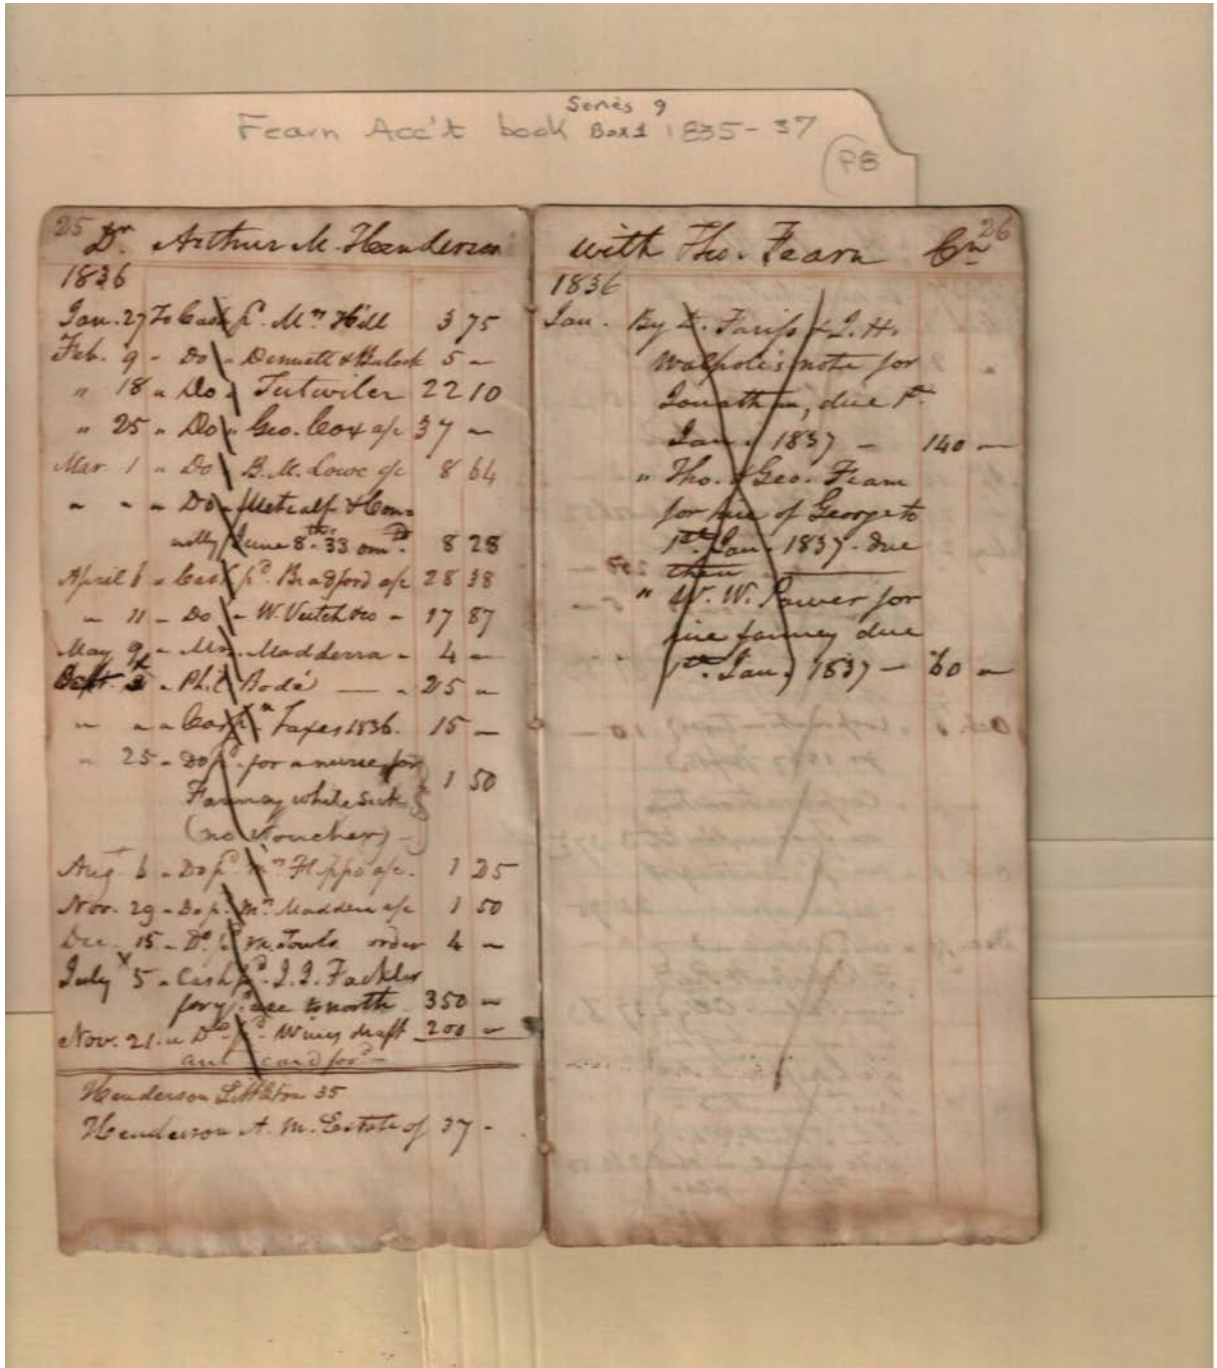 Series 9
Fearn Acc't book Box 1 1835-37
P8
25 Dr. Arthur M. Henderson
1836
Jan. 27 To Cash pd. Mrs Hill 3 75
Feb. 9 " Do " Bennett & 5 "
" 18 " Do " Tutwiler 22 10
" 25 " Do " Geo. Cox a/c 37 "
Mar 1 " Do " B. M. Lowe a/c 8 64
" " " Do " Metcalf & Con-
nolly June 8th 33 omtd. 8 28
April 6 " Cash pd. Bradford a/c 28 38
" 11 " Do " W. Veitch &co " 17 87
May 9 " Mrs. Madderra " 4 "
" Phil. Bodé — " 25 "
" " " Cash Taxes 1836. 15 "
" 25 " Do pd. for a nurse for
Fanney while sick 1 50
(no voucher) "
Augt 6 " Do pd. a/c. 1 25
Nov. 29 " Do pd. Mrs Maddera a/c 1 50
Dec. 15 " Do order 4 "
July x 5 " Cash pd. J. J. Fackler
for to north 350 "
Nov. 21. " Do pd. draft 200 "
ant card ford "
Henderson Littleton 35
Henderson A. M. Estate of 37 "
with Tho. Fearn Cr. 26
1836
Jan. By Fariss & J. H.
Walpole's note for
Jonathan, due 1st.
Jan. 1837 — 140 "
" Tho. & Geo. Fearn
for hire of George to
1st. Jan. 1837. due
then
" W. W. Power for
hire fanney due
1st. Jan. 1837 — 60 "